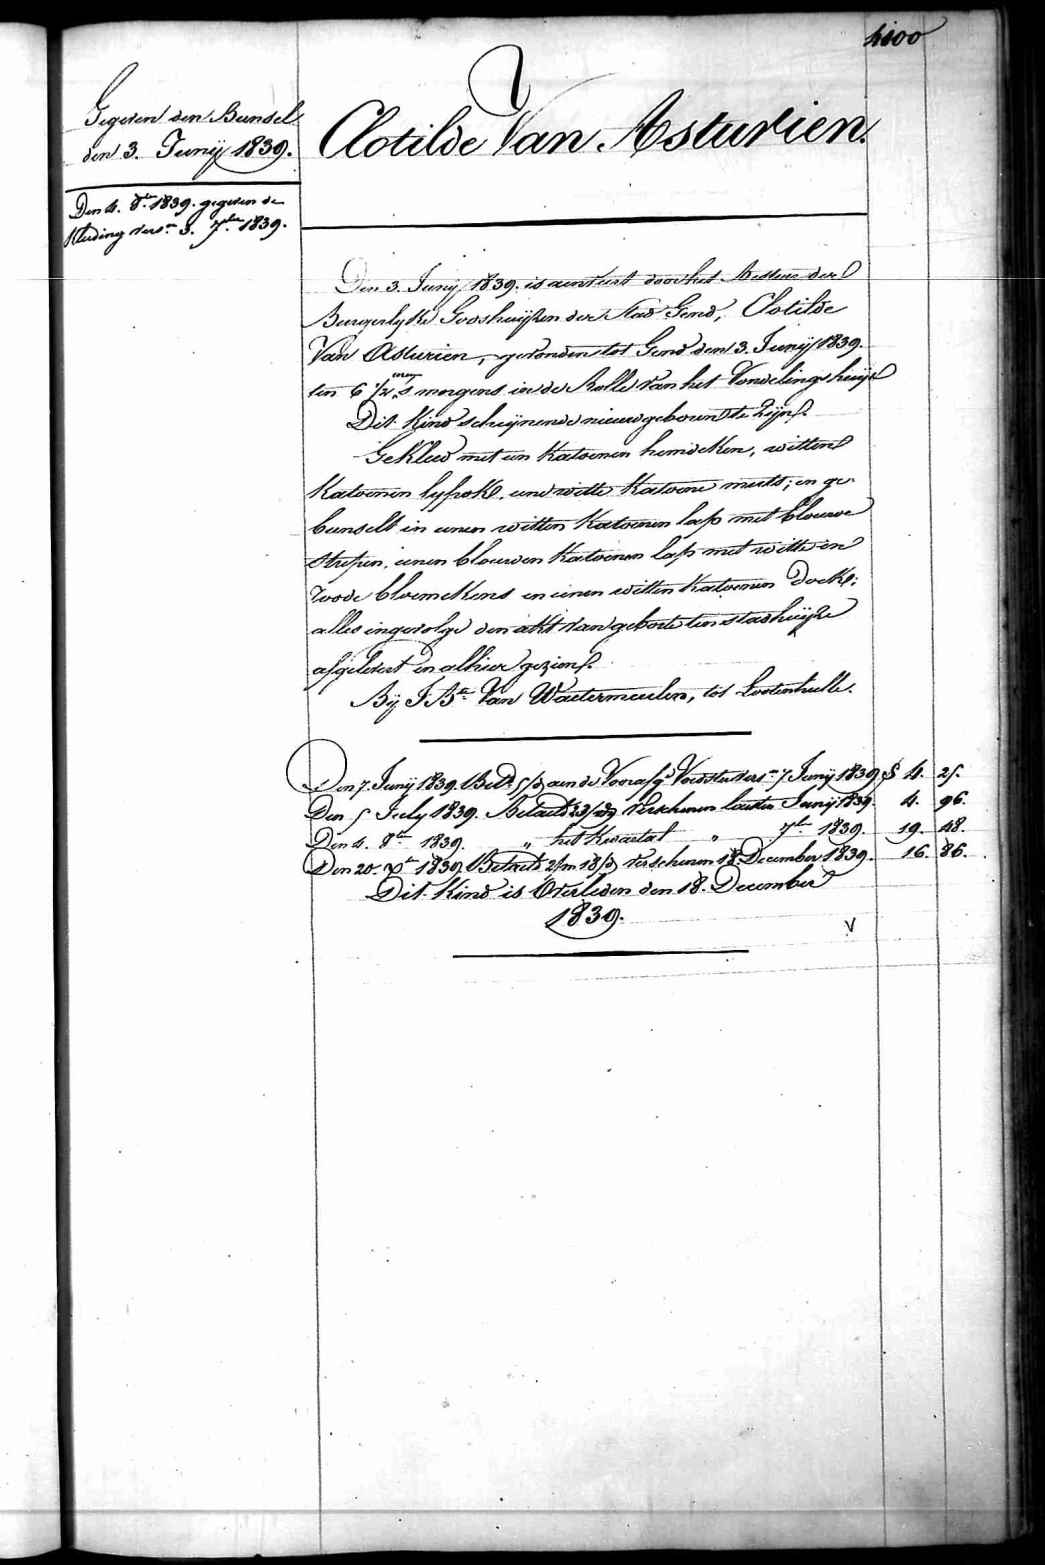 4100
Gegeven den Bunsel
den 3. Junij 1839.
Den 4. 8bre 1839. gegeven de
Kleeding versn 3. 7bre 1839.
Clotilde Van Asturien.
Den 3. Junij 1839. is aenveirt door het Bestier der
Burgerlyke Godshuijzen der Stad Gend, Clotilde
Van Asturien, gevonden tot Gend den 3. Junij 1839.
ten 6 1/2 uren 's morgens in de Rolle van het Vondelingshuijs
Dit Kind schijnende nieuwgeboren te zijn.
Gekleed met een Katoenen hemdeken, witten
Katoenen lyfrok, eene witte Katoene muts; en ge-
bunselt in eenen witten Katoenen lap met blouwe
strepen, eenen blouwen Katoenen lap met witte en
roode bloemekens en eenen witten Katoenen Doek;
alles ingevolge den akt van geboorte ten stadhuijze
afgelevert en alhier gezien.
Bij J. Bte Van Waetermeulen, tot Lootenhulle.
Den 7. Junij 1839. Bet. 5/d aen de Voorafgd Voedster versn 7 Junij 1839 f 4. 25.
Den 5 July 1839. Betaeld 23/d verschenen laetsten Junij 1839. 4. 96.
Den 4. 8bre 1839. " het Kwartael " 7bre 1839. 19. 48.
Den 20. Xbre 1839 Betaeld 2/m 18/d verschenen 18. December 1839. 16. 86.
Dit Kind is Overleden den 18. December
1839.
V